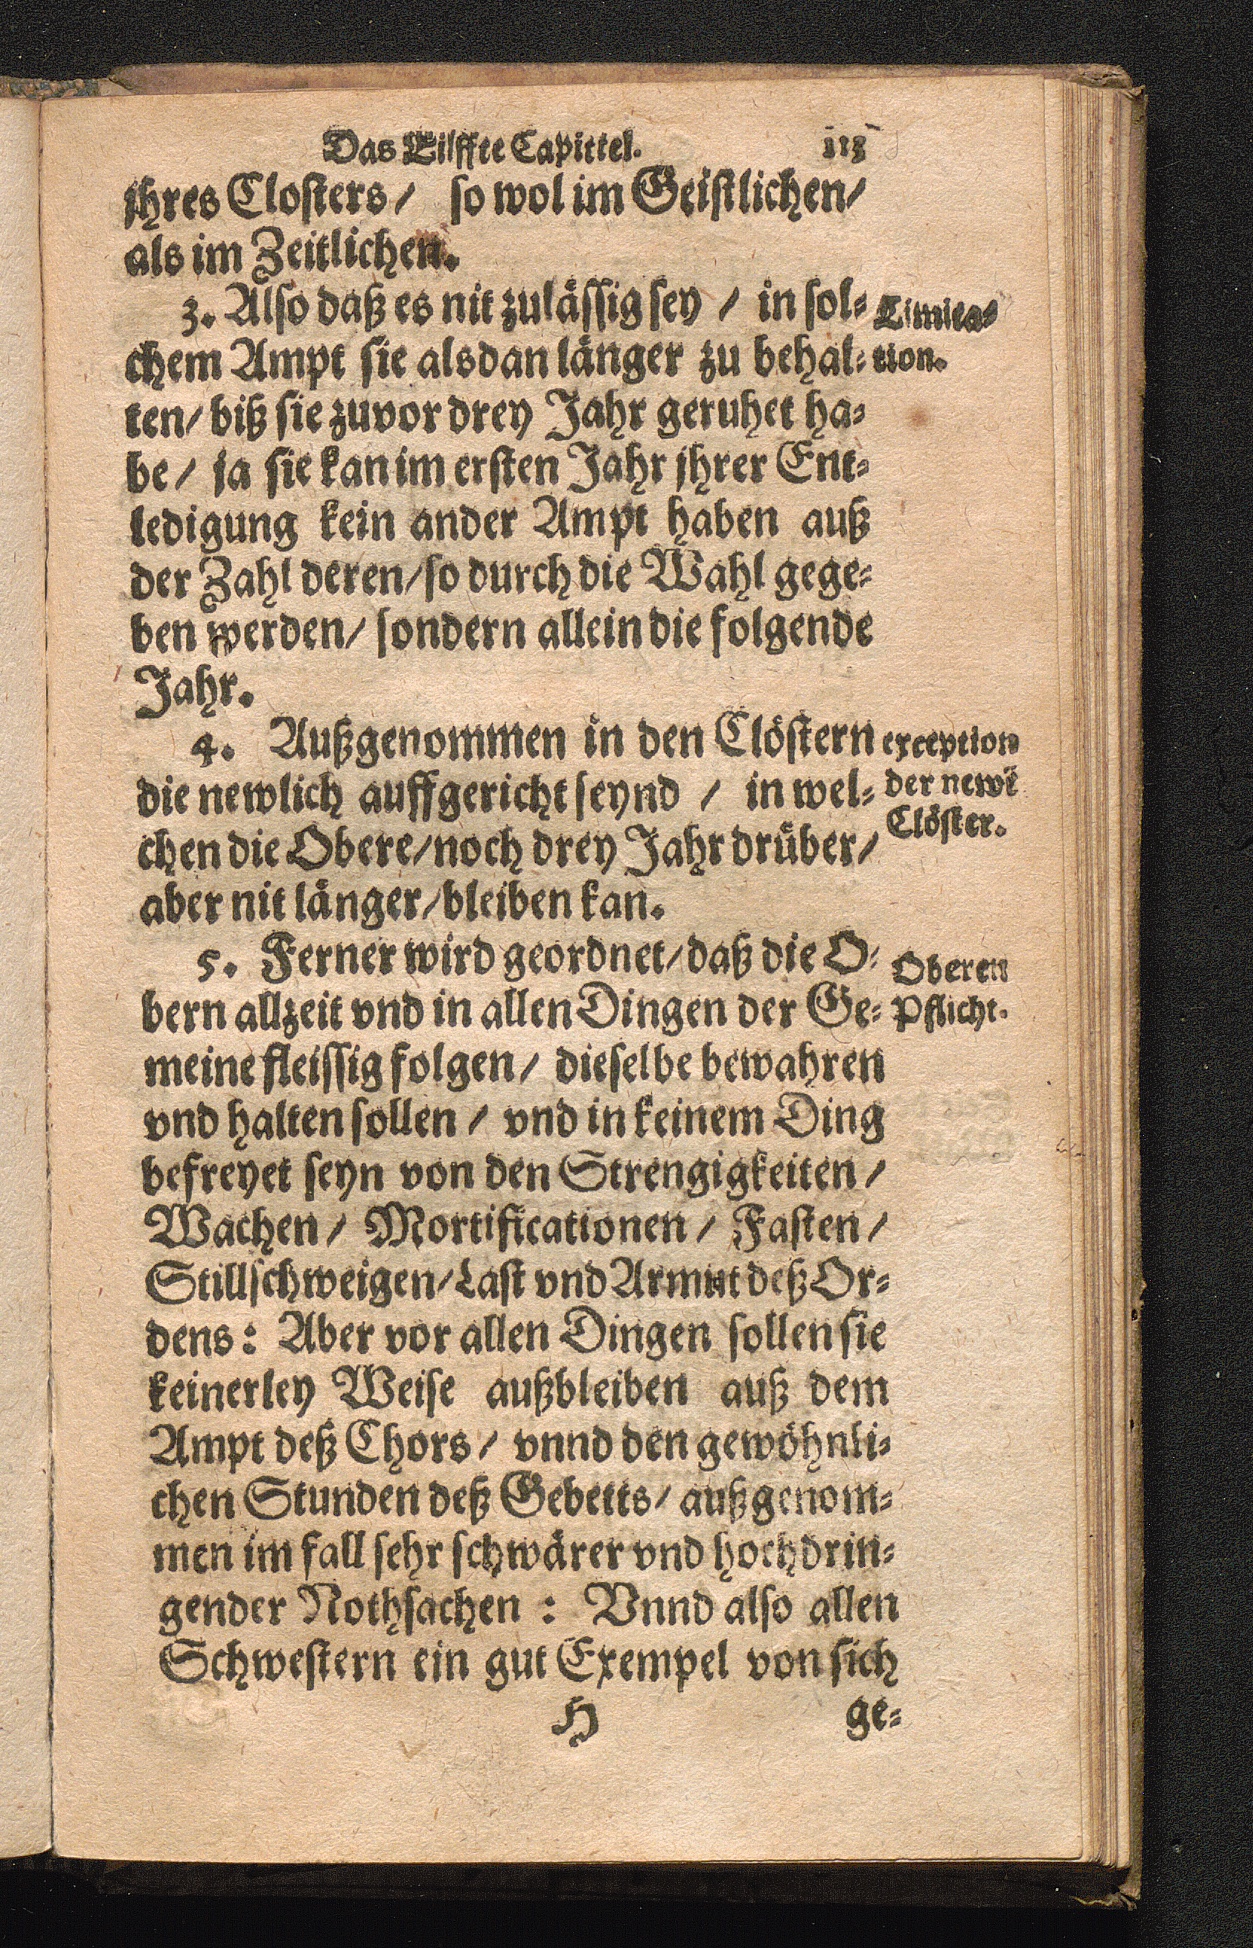 Das Eilffte Capittel. 113
jhres Closters / so wol im Geistlichen /
als im Zeitlichen.
3. Also daß es nit zulässig sey / in sol-
chem Ampt sie alsdan länger zu behal-
ten / biß sie zuvor drey Jahr geruhet ha-
be / ja sie kan im ersten Jahr jhrer Ent-
ledigung kein ander Ampt haben auß
der Zahl deren / so durch die Wahl gege-
ben werden / sondern allein die folgende
Jahr.
Limita-
tion.
4. Außgenommen in den Clöstern
die newlich auffgericht seynd / in wel-
chen die Obere / noch drey Jahr drüber /
aber nit länger / bleiben kan.
exception
der newē
Clöster.
5. Ferner wird geordnet / daß die O-
bern allzeit vnd in allen Dingen der Ge-
meine fleissig folgen / dieselbe bewahren
vnd halten sollen / vnd in keinem Ding
befreyet seyn von den Strengigkeiten /
Wachen / Mortificationen / Fasten /
Stillschweigen / Last vnd Armut deß Or-
dens : Aber vor allen Dingen sollen sie
keinerley Weise außbleiben auß dem
Ampt deß Chors / vnnd den gewöhnli-
chen Stunden deß Gebetts / außgenom-
men im fall sehr schwärer vnd hochdrin-
gender Nothsachen : Vnnd also allen
Schwestern ein gut Exempel von sich
Oberen
Pflicht.
H ge-